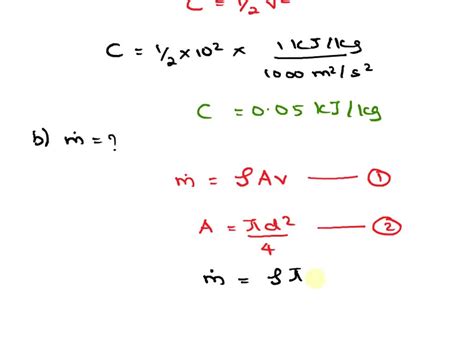 C = 1/2 v²
C = 1/2 × 10² × 1 kJ/kg / 1000 m²/s²
C = 0.05 kJ/kg
b) ṁ = ?
ṁ = ρAv —— ①
A = πd²/4 —— ②
ṁ = ρπ